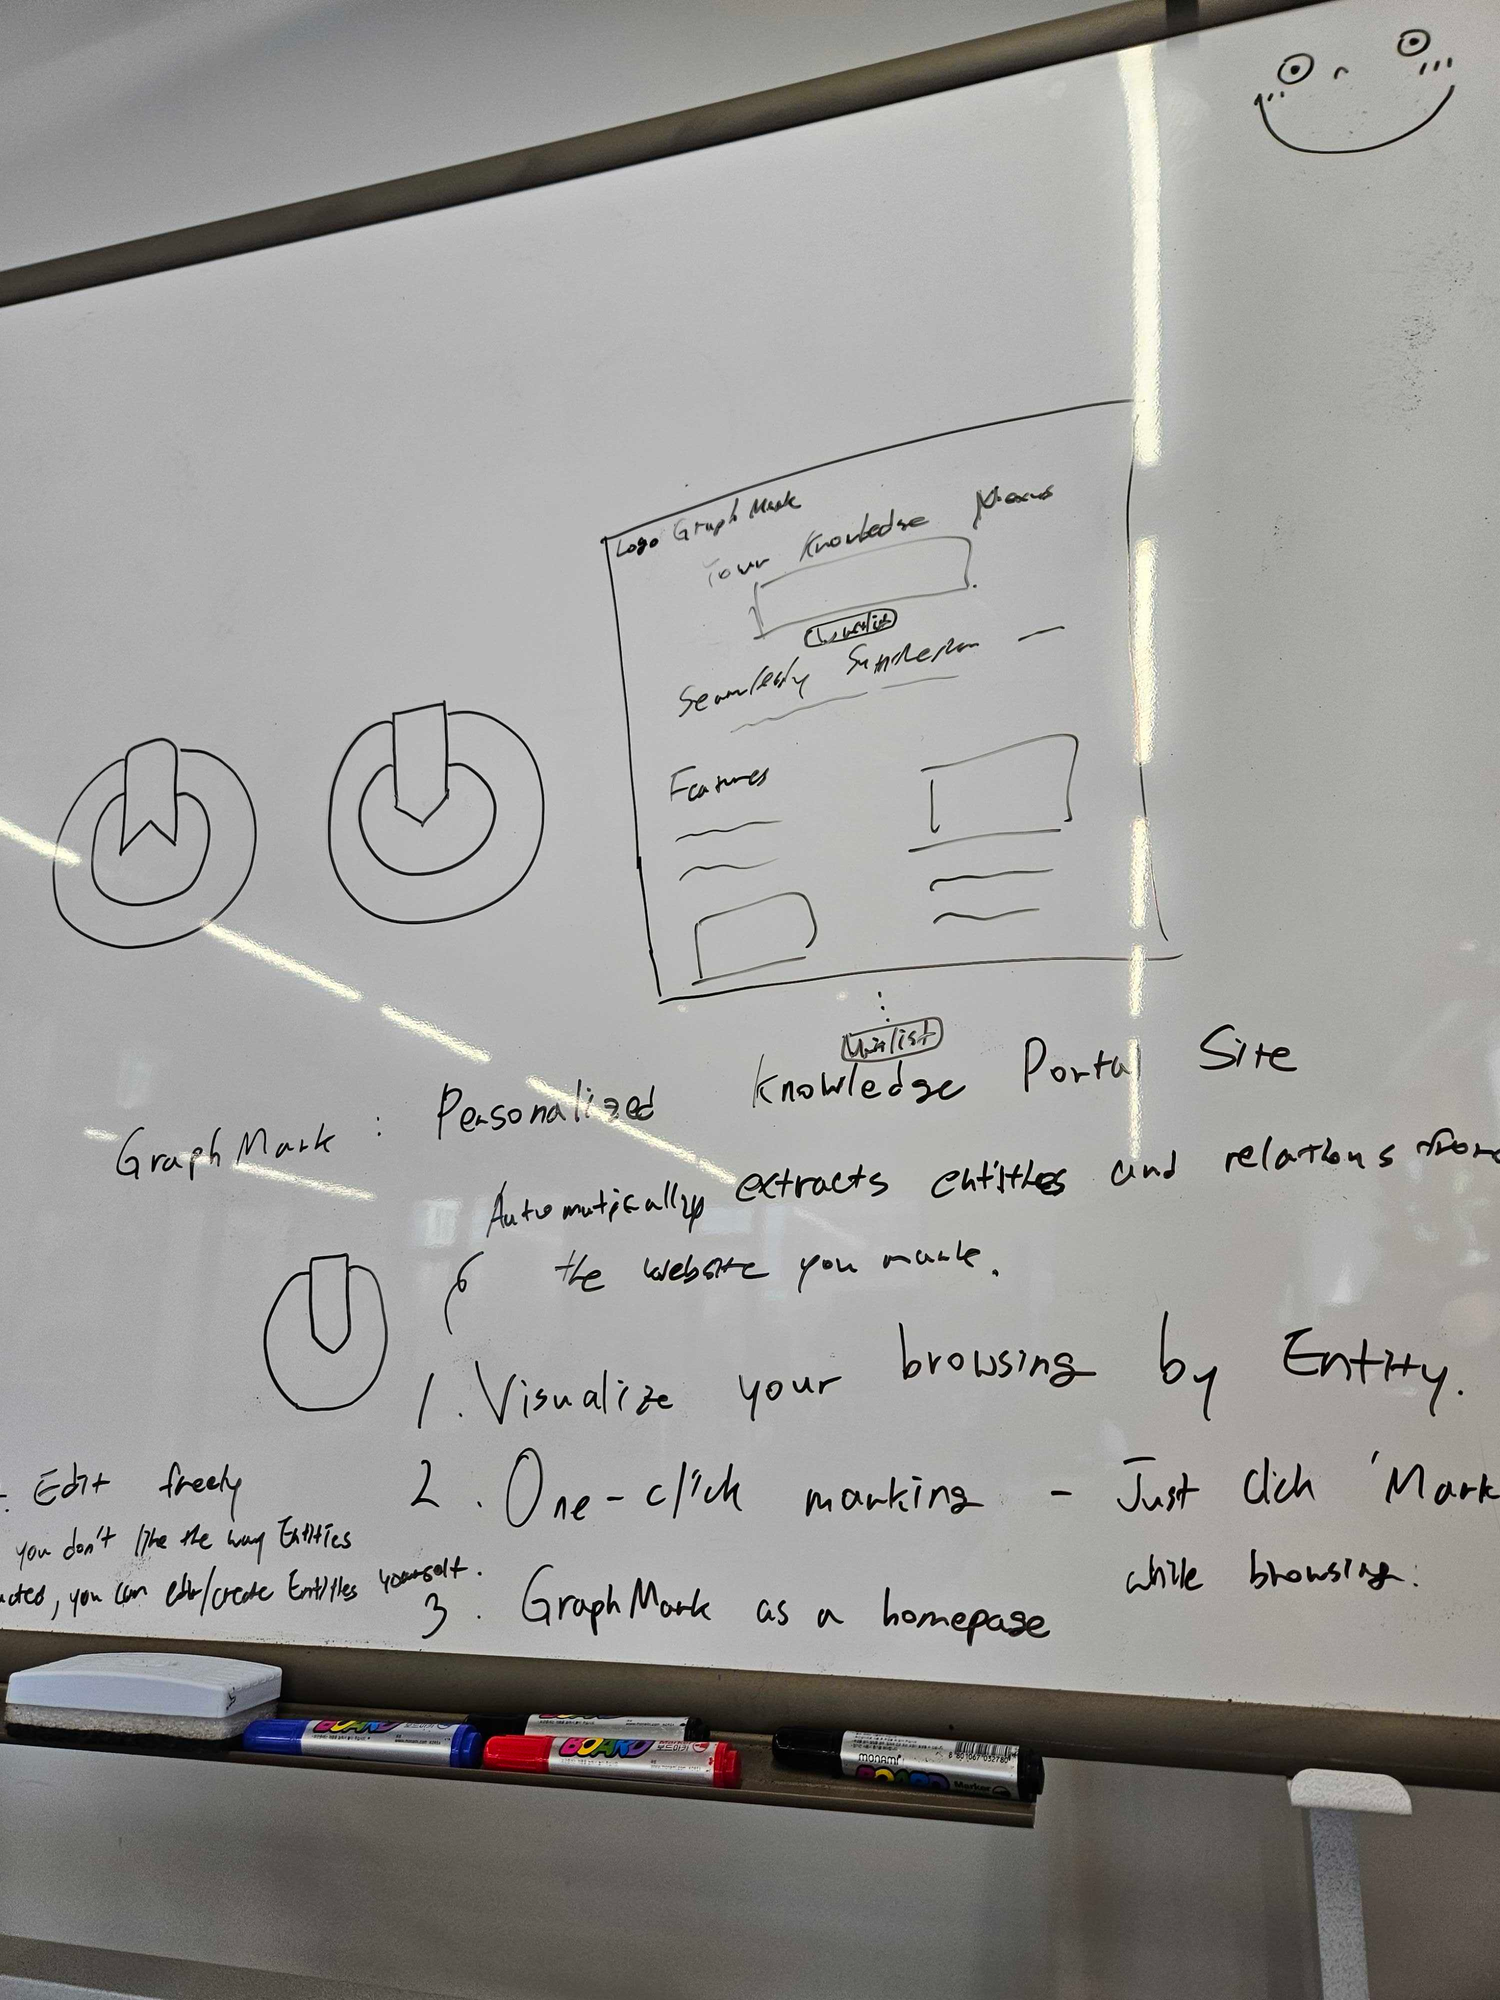 Logo GraphMark
Your Knowledge Nexus
Seamlessly
Features
Waitlist
GraphMark : Personalized Knowledge Portal Site
Automatically extracts entities and relations from
the website you mark.
1. Visualize your browsing by Entity.
2. One-click marking - Just click 'Mark
while browsing.
3. GraphMark as a homepage
Edit freely
you don't like the way Entities
you can edit/create Entities yourself.
BOARD
BOARD
monami
BOARD Marker
8 801067 032780